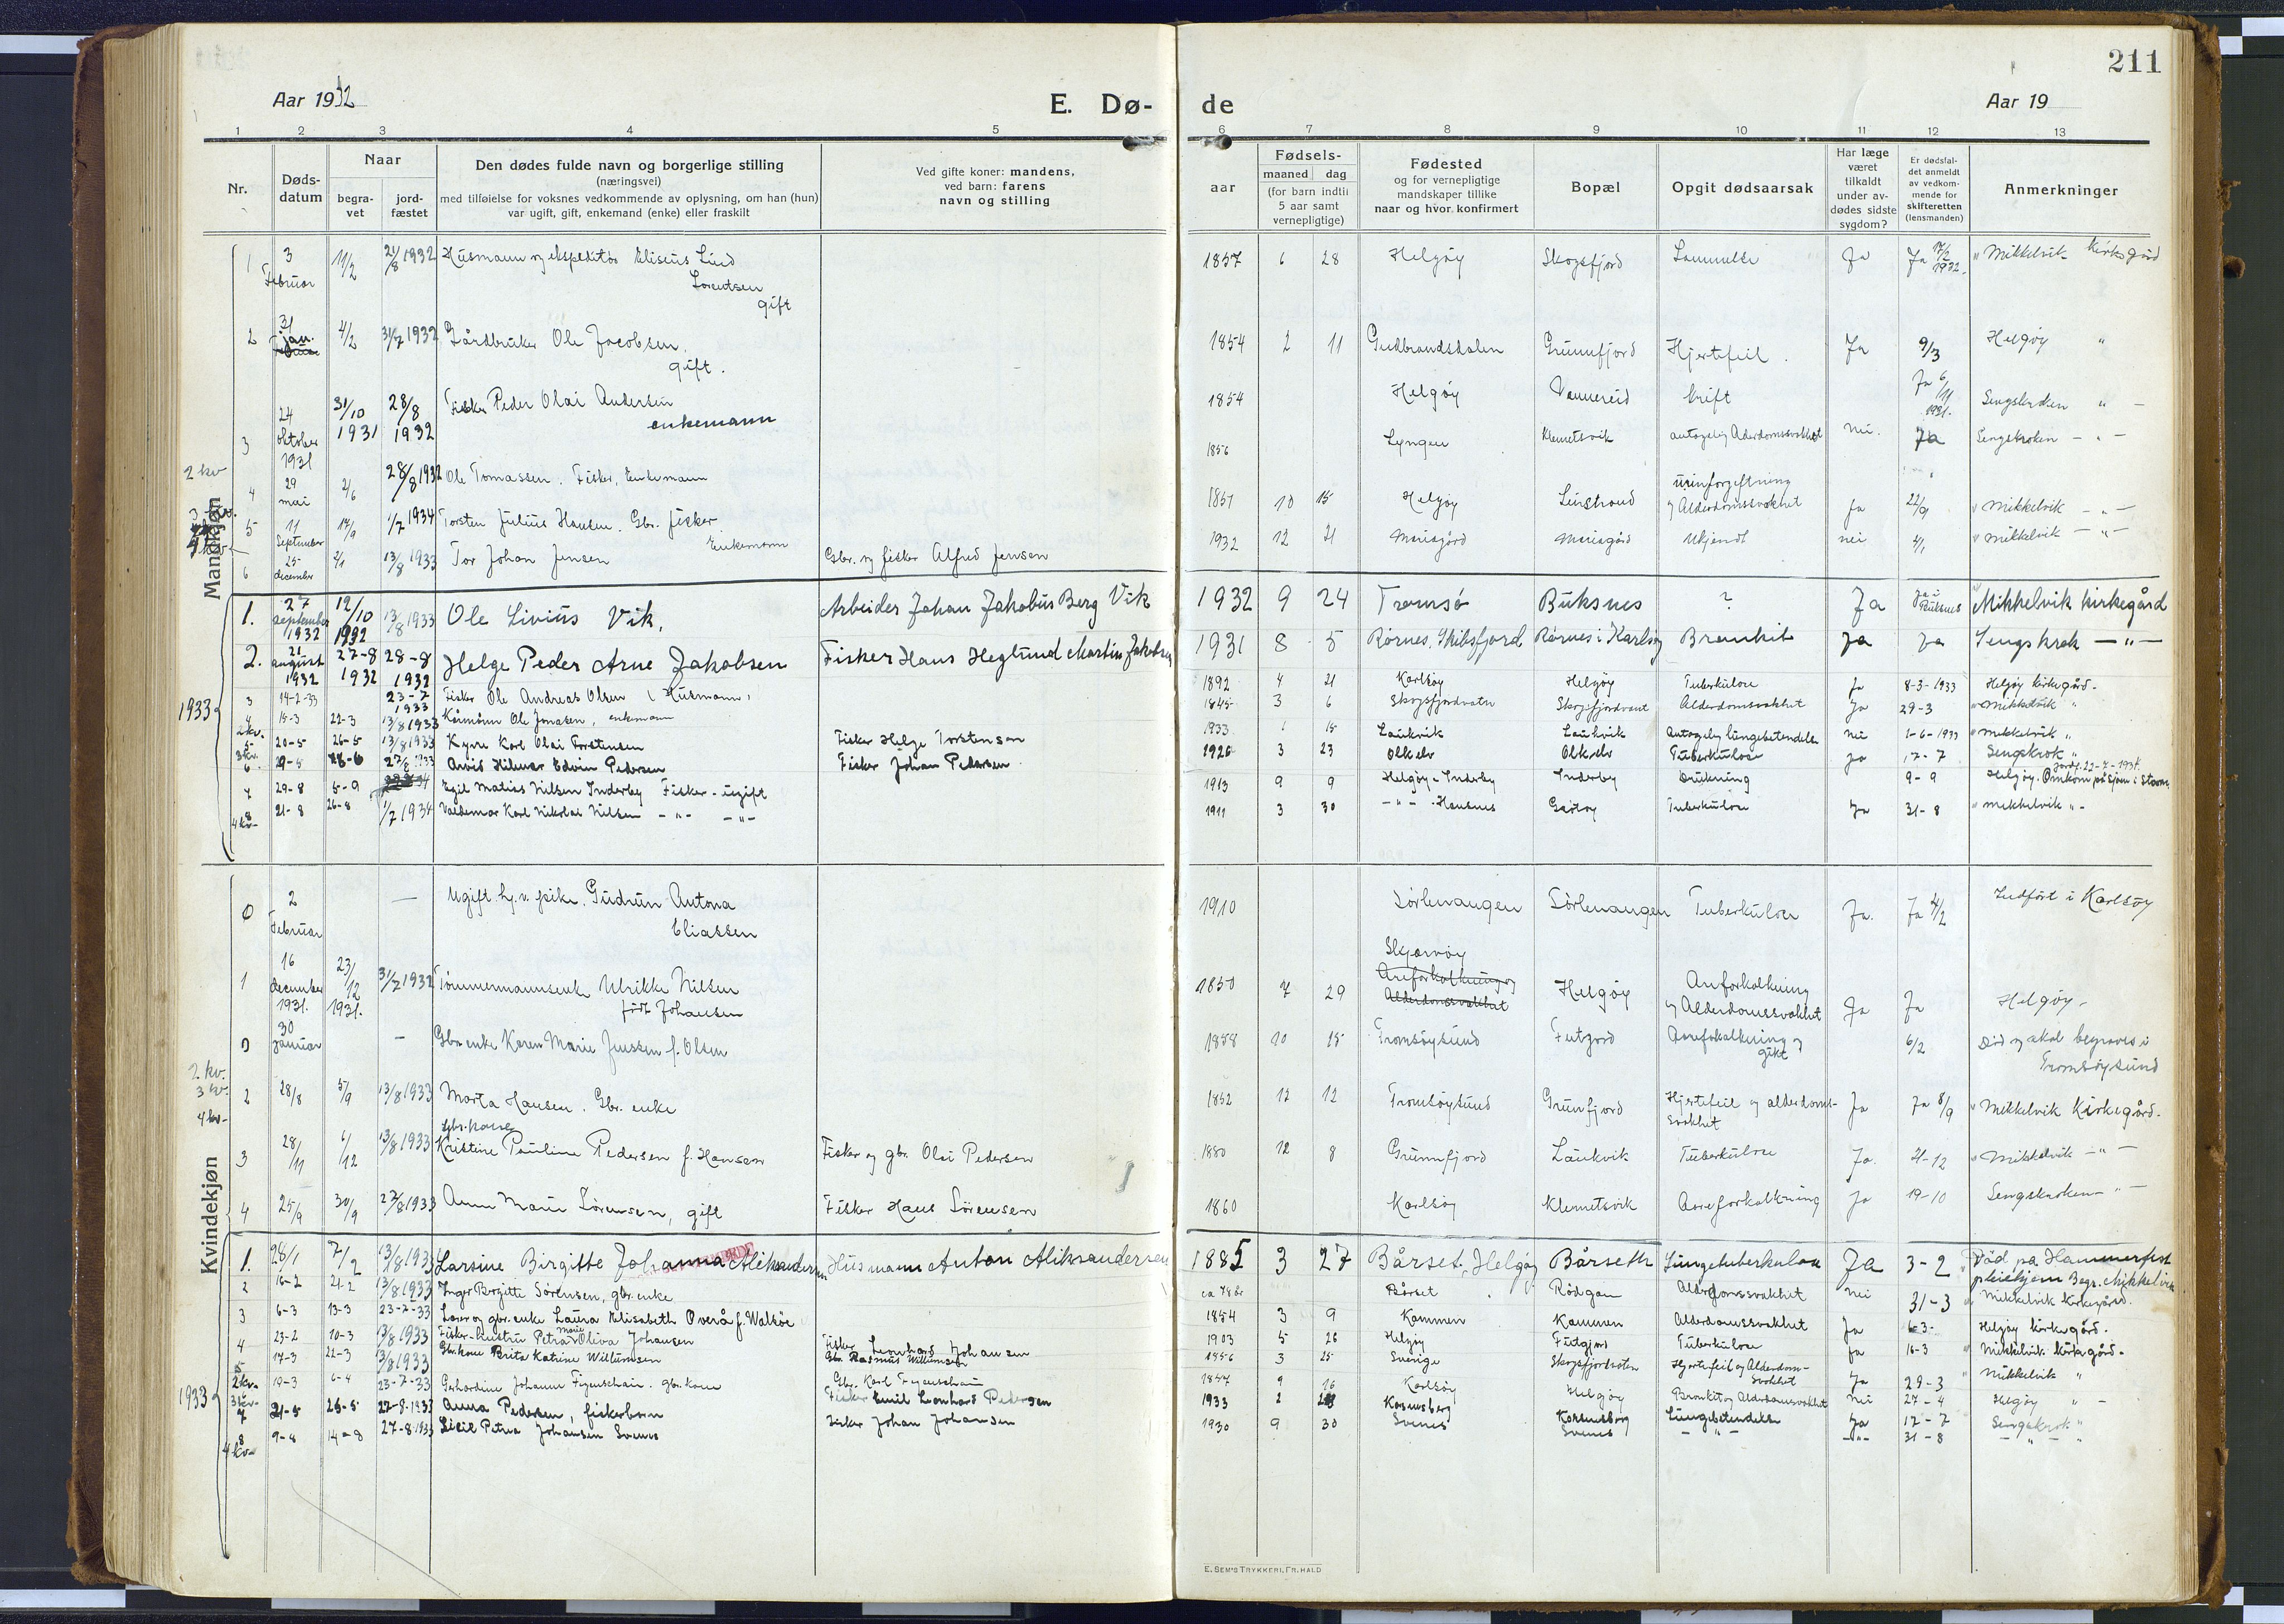 211
Aar 1932
E. Dø-
de
Aar 19
1 2 3 4 5 6 7 8 9 10 11 12 13
Nr.
Døds-
datum
Naar
begra-
vet
jord-
fæstet
Den dødes fulde navn og borgerlige stilling
(næringsvei)
med tilføielse for voksnes vedkommende av oplysning, om han (hun)
var ugift, gift, enkemand (enke) eller fraskilt
Ved gifte koner: mandens,
ved barn: farens
navn og stilling
aar
Fødsels-
maaned dag
(for barn indtil
5 aar samt
vernepligtige)
Fødested
og for vernepligtige
mandskaper tillike
naar og hvor konfirmert
Bopæl
Opgit dødsaarsak
Har læge
været
tilkaldt
under av-
dødes sidste
sygdom?
Er dødsfal-
det anmeldt
av vedkom-
mende for
skifteretten
(lensmanden)
Anmerkninger
Mandkjøn
1 3 Februar 11/2 21/8 1932 Husmann og ekspeditør Eliseus Lind Lorentsen gift 1857 6 28 Helgøy Skogsfjord Ja Ja 17/2 1932 Mikkelvik Kirkegård
2 31 jan. 4/2 31/7 1932 Gårdbruker Ole Jacobsen gift. 1854 2 11 Gudbrandsdalen Grunnfjord Hjertefeil. Ja 9/3 Helgøy "
3 24 oktober 1931 31/10 1931 28/8 1932 Fisker Peder Olai Andersen enkemann 1854 Helgøy Vannereid Ja 6/11 1931. Sengskroken " -
2 kv
4 29 mai 2/6 28/8 1932 Ole Tomassen. Fisker, Enkemann 1856 Lyngen Klemetsvik antagelig Alderdomssvakhet nei. Ja Sengskroken - " -
3 kv.
5 11 September 17/9 1/7 1934 Torsten Julius Hansen. Gbr. fisker Enkemann 1857 10 15 Helgøy urinforgiftning og Alderdomssvakhet Ja 22/9 Mikkelvik - " -
6 25 december 2/1 13/8 1933 Tor Johan Jensen Gbr. og fisker Alfred Jensen 1932 12 21 Mariagård Mariagård Ukjendt nei 4/1 Mikkelvik - " -
1933
1. 27 september 1932 12/10 1932 13/8 1933 Ole Livius Vik, Arbeider Johan Jakobus Berg Vik 1932 9 24 Tromsø Buksnes ? Ja Mikkelvik kirkegård
2. 21 august 1932 27-8 1932 28-8 1932 Helge Peder Arne Jakobsen Fisker Hans Heglund Martin Jakobsen 1931 8 5 Rørnes, Skibsfjord Rørnes i Karlsøy Bronkit Ja Ja Sengskrok - " -
3 14-2-33 23-7 1933 Fisker Ole Andreas Olsen (Husmann) 1892 4 21 Karlsøy Helgøy Tuberkulose Ja 8-3-1933 Helgøy kirkegård.
4 15-3 22-3 13/8 1933 Kårmann Ole Jonasen, enkemann 1845 3 6 Skogsfjordvatn Skogsfjordvatn Alderdomssvakhet Ja 29-3 Mikkelvik "
2 kv.
5 20-5 26-5 13/8 1933 Kyrre Karl Olai Torstensen Fisker Helge Torstensen 1933 1 15 Laukvik Laukvik Antagelig lungebetendelse nei 1-6-1933 Mikkelvik "
3 kv.
6 29-5 28-6 27/8 1933 Arvid Hilmar Edvin Pedersen Fisker Johan Pedersen 1926 3 23 Olkelv Olkelv Tuberkulose ja 17-7 Sengskrok "
7 29-8 5-9 Egil Matius Nilsen Inderby Fisker - ugift 1913 9 9 Helgøy - Inderby Inderby Drukning 9-9 Jordf. 22-7-1934. Helgøy. Omkom på sjøen i Storm.
8 21-8 26-8 1/7 1934 Valdemar Karl Nikolai Nilsen - " - - " - 1911 3 30 - " - Hansnes Tuberkulose Ja 31-8 Mikkelvik " -
4 kv-
Kvindekjøn
0 2 Februar — Ugift hj.v. pike. Gudrun Antona Eliassen 1910 Sørlenangen Sørlenangen Tuberkulose Ja. Ja 4/2 Indført i Karlsøy
1 16 december 1931. 23/12 1931. 31/7 1932 Tømmermannsenke Ulrikke Nilsen født Johansen 1850 7 29 Skjærvøy Areforkalkning og Alderdomssvakhet Helgøy Areforkalkning og Alderdomssvakhet Ja Ja Helgøy -
0 30 januar — Gbr. enke Karen Marie Jenssen f. Olsen 1858 10 15 Tromsøysund Futgjord Areforkalkning og gikt 6/2 Død og skal begraves i Tromsøysund
2. kv.
3 kv.
4 kv-
2 28/8 5/9 13/8 1933 Marta Hansen. Gbr. enke 1852 12 12 Tromsøysund Grunfjord Hjertefeil og alderdoms-svakhet Ja Ja 8/9 Mikkelvik Kirkegård.
3 28/11 6/12 13/8 1933 Gbr. kone Kristine Pauline Pedersen f. Hansen Fisker og gbr. Olai Pedersen 1880 12 8 Grunnfjord Laukvik Tuberkulose Ja. 21-12 Mikkelvik - " -
4 25/9 30/9 27/8 1933 Anna Marie Sørensen, gift Fisker Hans Sørensen 1860 Karlsøy Klemetsvik Aareforkalkning Ja 19-10 Sengskroken - " -
1933
1. 28/1 7/2 13/8 1933 Larsine Birgitte Johanna Aleksandersen Husmann Anton Aleksandersen 1885 3 27 Bårset, Helgøy Bårseth Lungetuberkulose Ja 3-2 Død på Hammerfest pleiehjem Begr. Mikkelvik
2 16-2 21-2 13/8 1933 Inger Birgitte Sørensen, gbr. enke ca 78 år Bårset Rødgan Alderdomssvakhet nei 31-3 Mikkelvik kirkegård.
3 6-3 13-3 23-7-33 Laura Elisabeth Overå f. Walsøe 1854 3 9 Kammen Kammen Alderdomssvakhet Ja 6-3- Helgøy kirkegård.
4 23-2 10-3 13/8 1933 Fisker-hustru Petra Marie Oliva Johansen Fisker Leonhard Johansen 1903 5 26 Helgøy Futgjord Tuberkulose Ja 16-3 Mikkelvik kirkegård.
5 14-3 22-3 13/8 1933 Gbr. kone Brita Katrine Willumsen Gbr. Rasmus Willumsen 1856 3 25 Sverige Skogsfjordvatn Hjertefeil og Alderdom-svakhet Ja 29-3 Mikkelvik "
2 kv-
19-3 6-4 23-7-33 Gerhardine Johanne Figenschau. gbr. kone Gbr. Karl Figenschau 1857 9 16 Karlsøy Helgøy Bronkit og Alderdomssvakhet nei 27-4 Helgøy " -
3 kv-
7 21-5 26-5 27-8-1933 Anna Pedersen, fiskerbarn Fisker Emil Leonhard Pedersen 1933 2 Korsnesberg Lungebetendelse Ja 17-7 Sengskrok "
8 9-8 14-8 27-8 1933 Petra Johansen Svenes Fisker Johan Johansen 1930 9 30 Svenes Svenes - " - - " - 31-8 - " - "
4 kv-
E. SEM'S TRYKKERI, FR. HALD